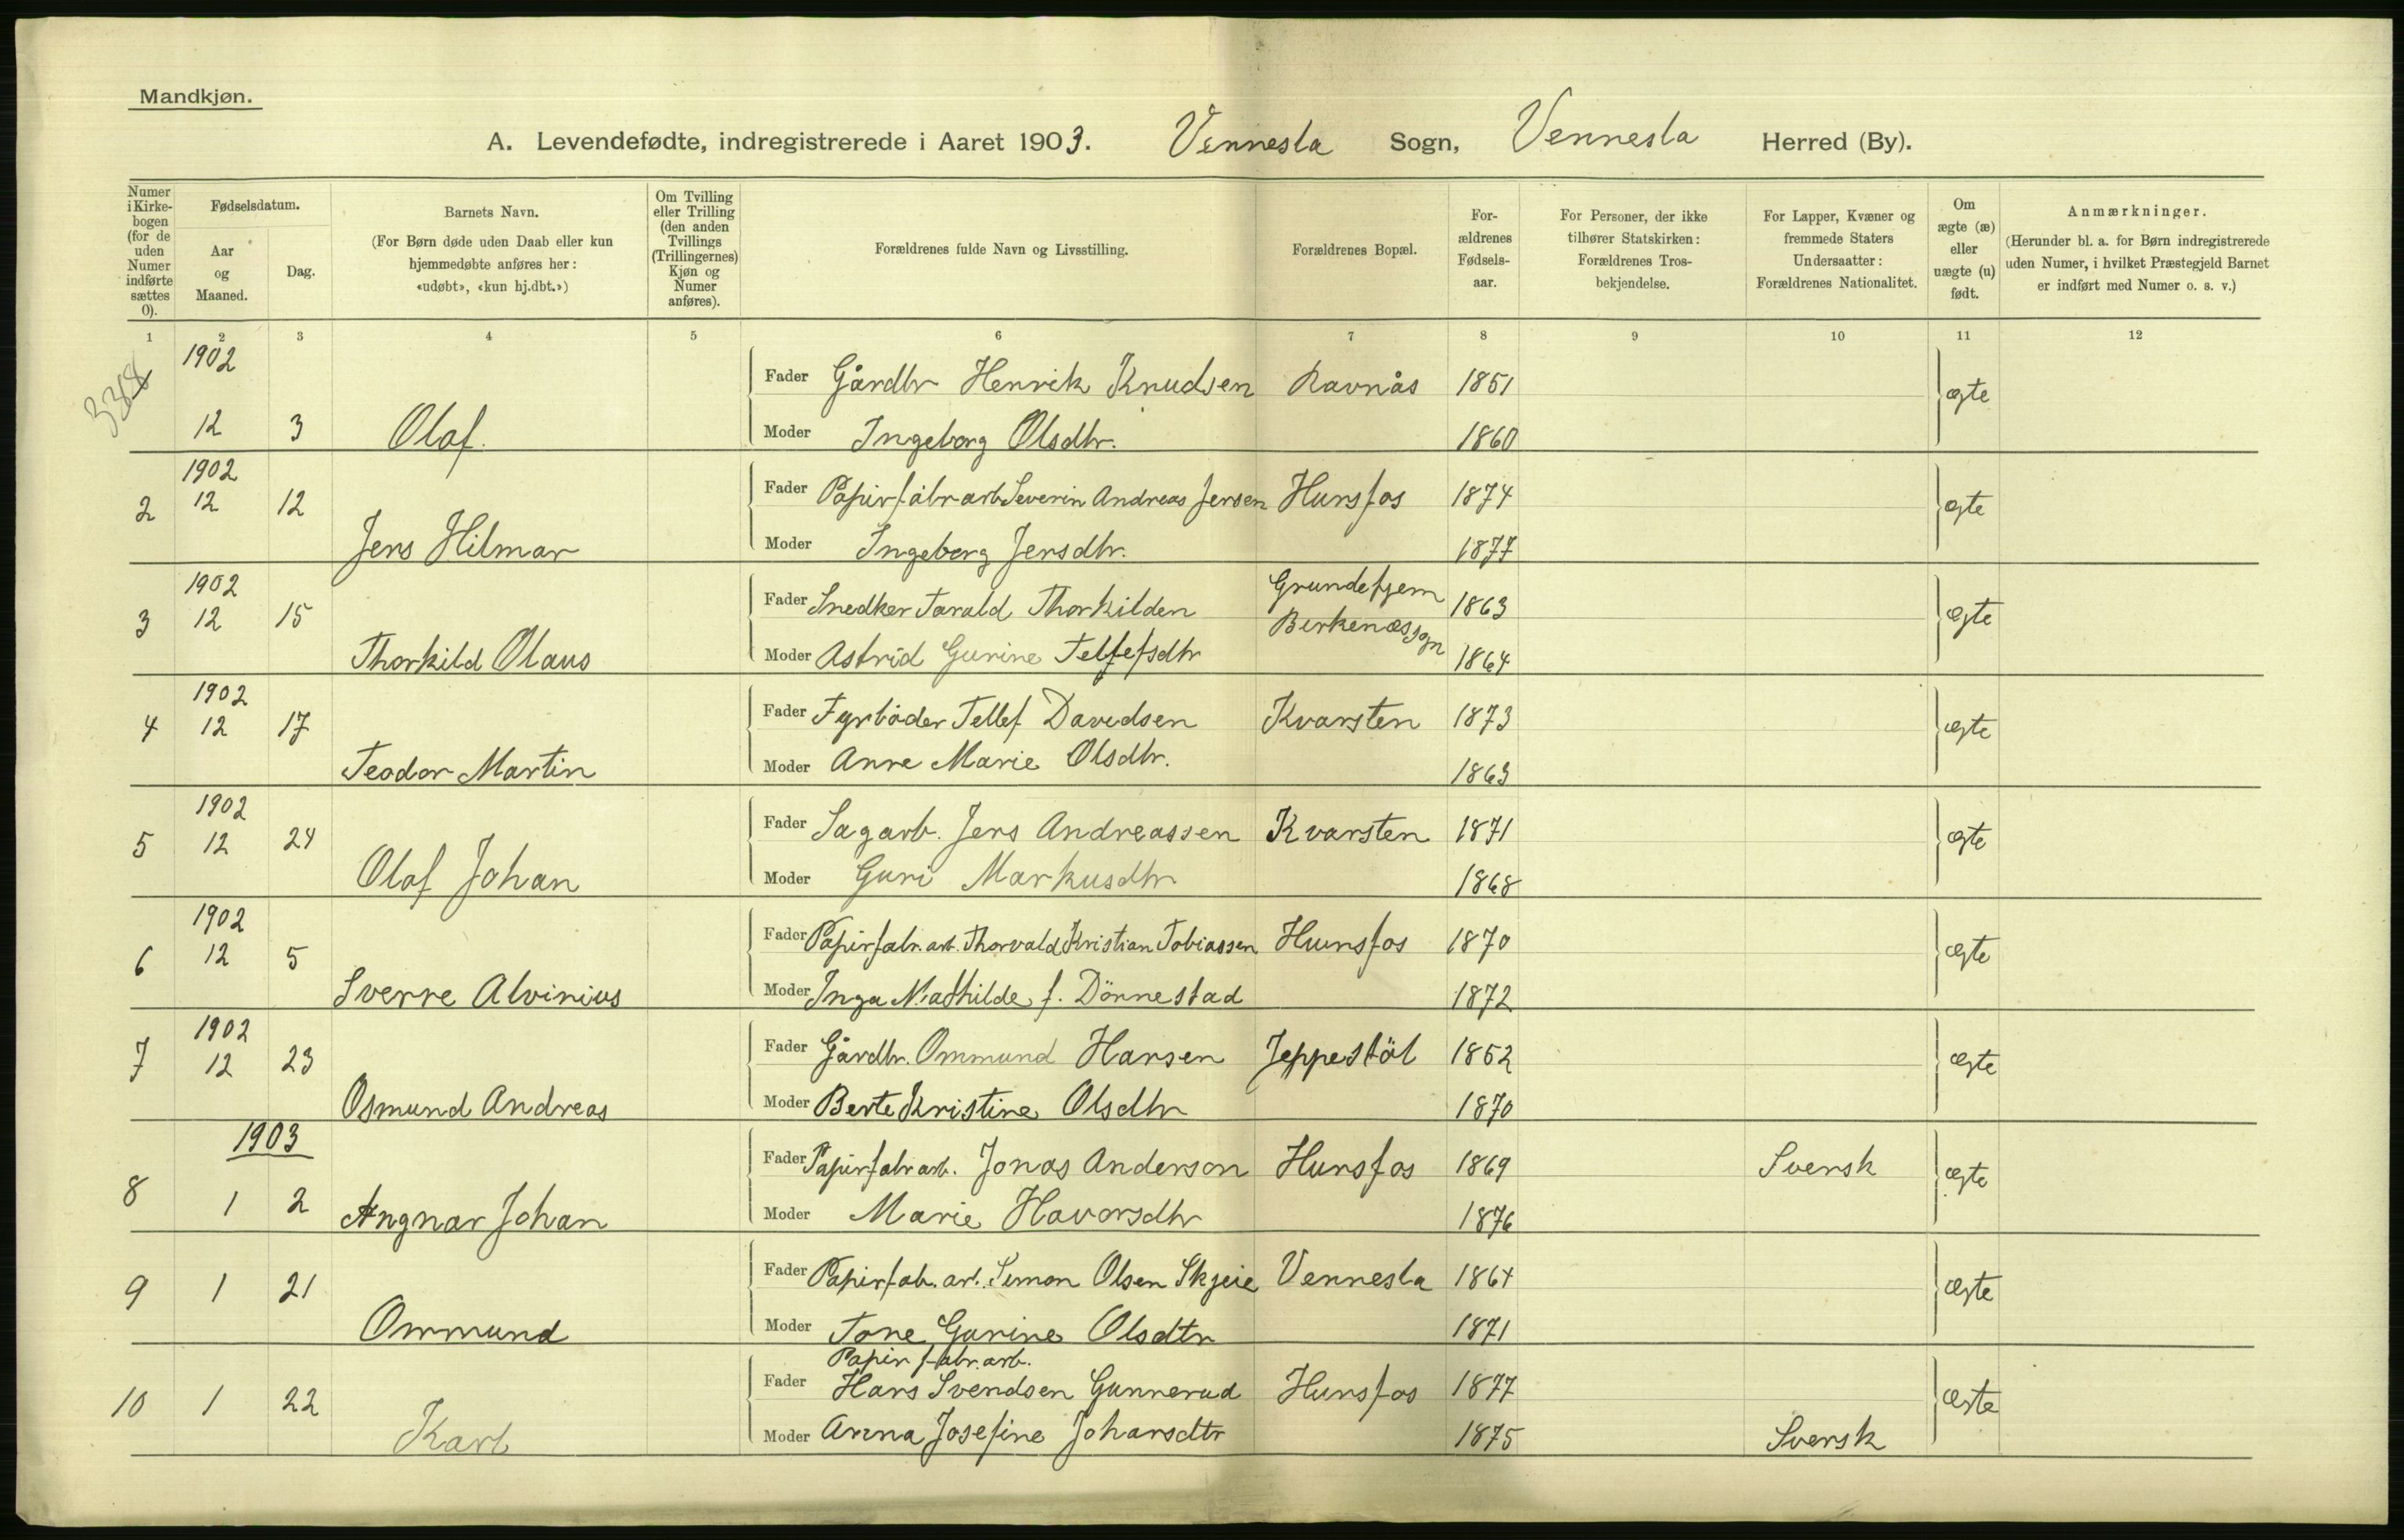 Mandkjøn.
A. Levendefødte, indregistrerede i Aaret 1903. Vennesla Sogn, Vennesla Herred (By).
Numer i Kirkebogen (for de uden Numer indførte sættes 0).
Fødselsdatum.
Aar og Maaned.
Dag.
Barnets Navn.
(For Børn døde uden Daab eller kun hjemmedøbte anføres her: «udøbt», «kun hj.dbt.»)
Om Tvilling eller Trilling (den anden Tvillings (Trillingernes) Kjøn og Numer anføres).
Forældrenes fulde Navn og Livsstilling.
Forældrenes Bopæl.
Forældrenes Fødselsaar.
For Personer, der ikke tilhører Statskirken: Forældrenes Trosbekjendelse.
For Lapper, Kvæner og fremmede Staters Undersaatter: Forældrenes Nationalitet.
Om ægte (æ) eller uægte (u) født.
Anmærkninger.
(Herunder bl. a. for Børn indregistrerede uden Numer, i hvilket Præstegjeld Barnet er indført med Numer o. s. v.)
1 2 3 4 5 6 7 8 9 10 11 12
1902
Fader Gårdbr Henrik Knudsen Ravnås 1851 ægte
12 3 Olaf. Moder Ingeborg Olsdtr. 1860
1902
2 12 12 Fader Papirfabr arb Severin Andreas Jensen Hunsfos 1874 ægte
Jens Hilmar Moder Ingeborg Jensdtr. 1877
1902
3 12 15 Fader Snedker Tarald Thorkilden Grundetjern Birkenæs sogn 1863 ægte
Thorkild Olaus Moder Astrid Gurine Tellefsdtr 1864
1902
4 12 17 Fader Fyrbøder Tellef Davidsen Kvarsten 1873 ægte
Teodor Martin Moder Anne Marie Olsdtr. 1863
1902
5 12 24 Fader Sagarb. Jens Andreassen Kvarsten 1871 ægte
Olaf Johan Moder Guri Markusdtr 1868
1902
6 12 5 Fader Papirfabr. arb. Thorvald Kristian Tobiassen Hunsfos 1870 ægte
Sverre Alvinius Moder Inga Mathilde f. Dönnestad 1872
1902
7 12 23 Fader Gårdbr. Ommund Hansen Jeppestöl 1852 ægte
Osmund Andreas Moder Berte Kristine Olsdtr 1870
1903
8 1 2 Fader Papirfabr arb. Jonas Anderson Hunsfos 1869 Svensk ægte
Angnar Johan Moder Marie Havorsdtr 1876
9 1 21 Fader Papirfab. arb. Simon Olsen Skjeie Vennesla 1864 ægte
Ommund Moder Tone Gurine Olsdtr 1871
Papir fabr. arb.
10 1 22 Fader Hans Svendsen Gunnerud Hunsfos 1877 ægte
Karl Moder Anna Josefine Johansdtr 1875 Svensk